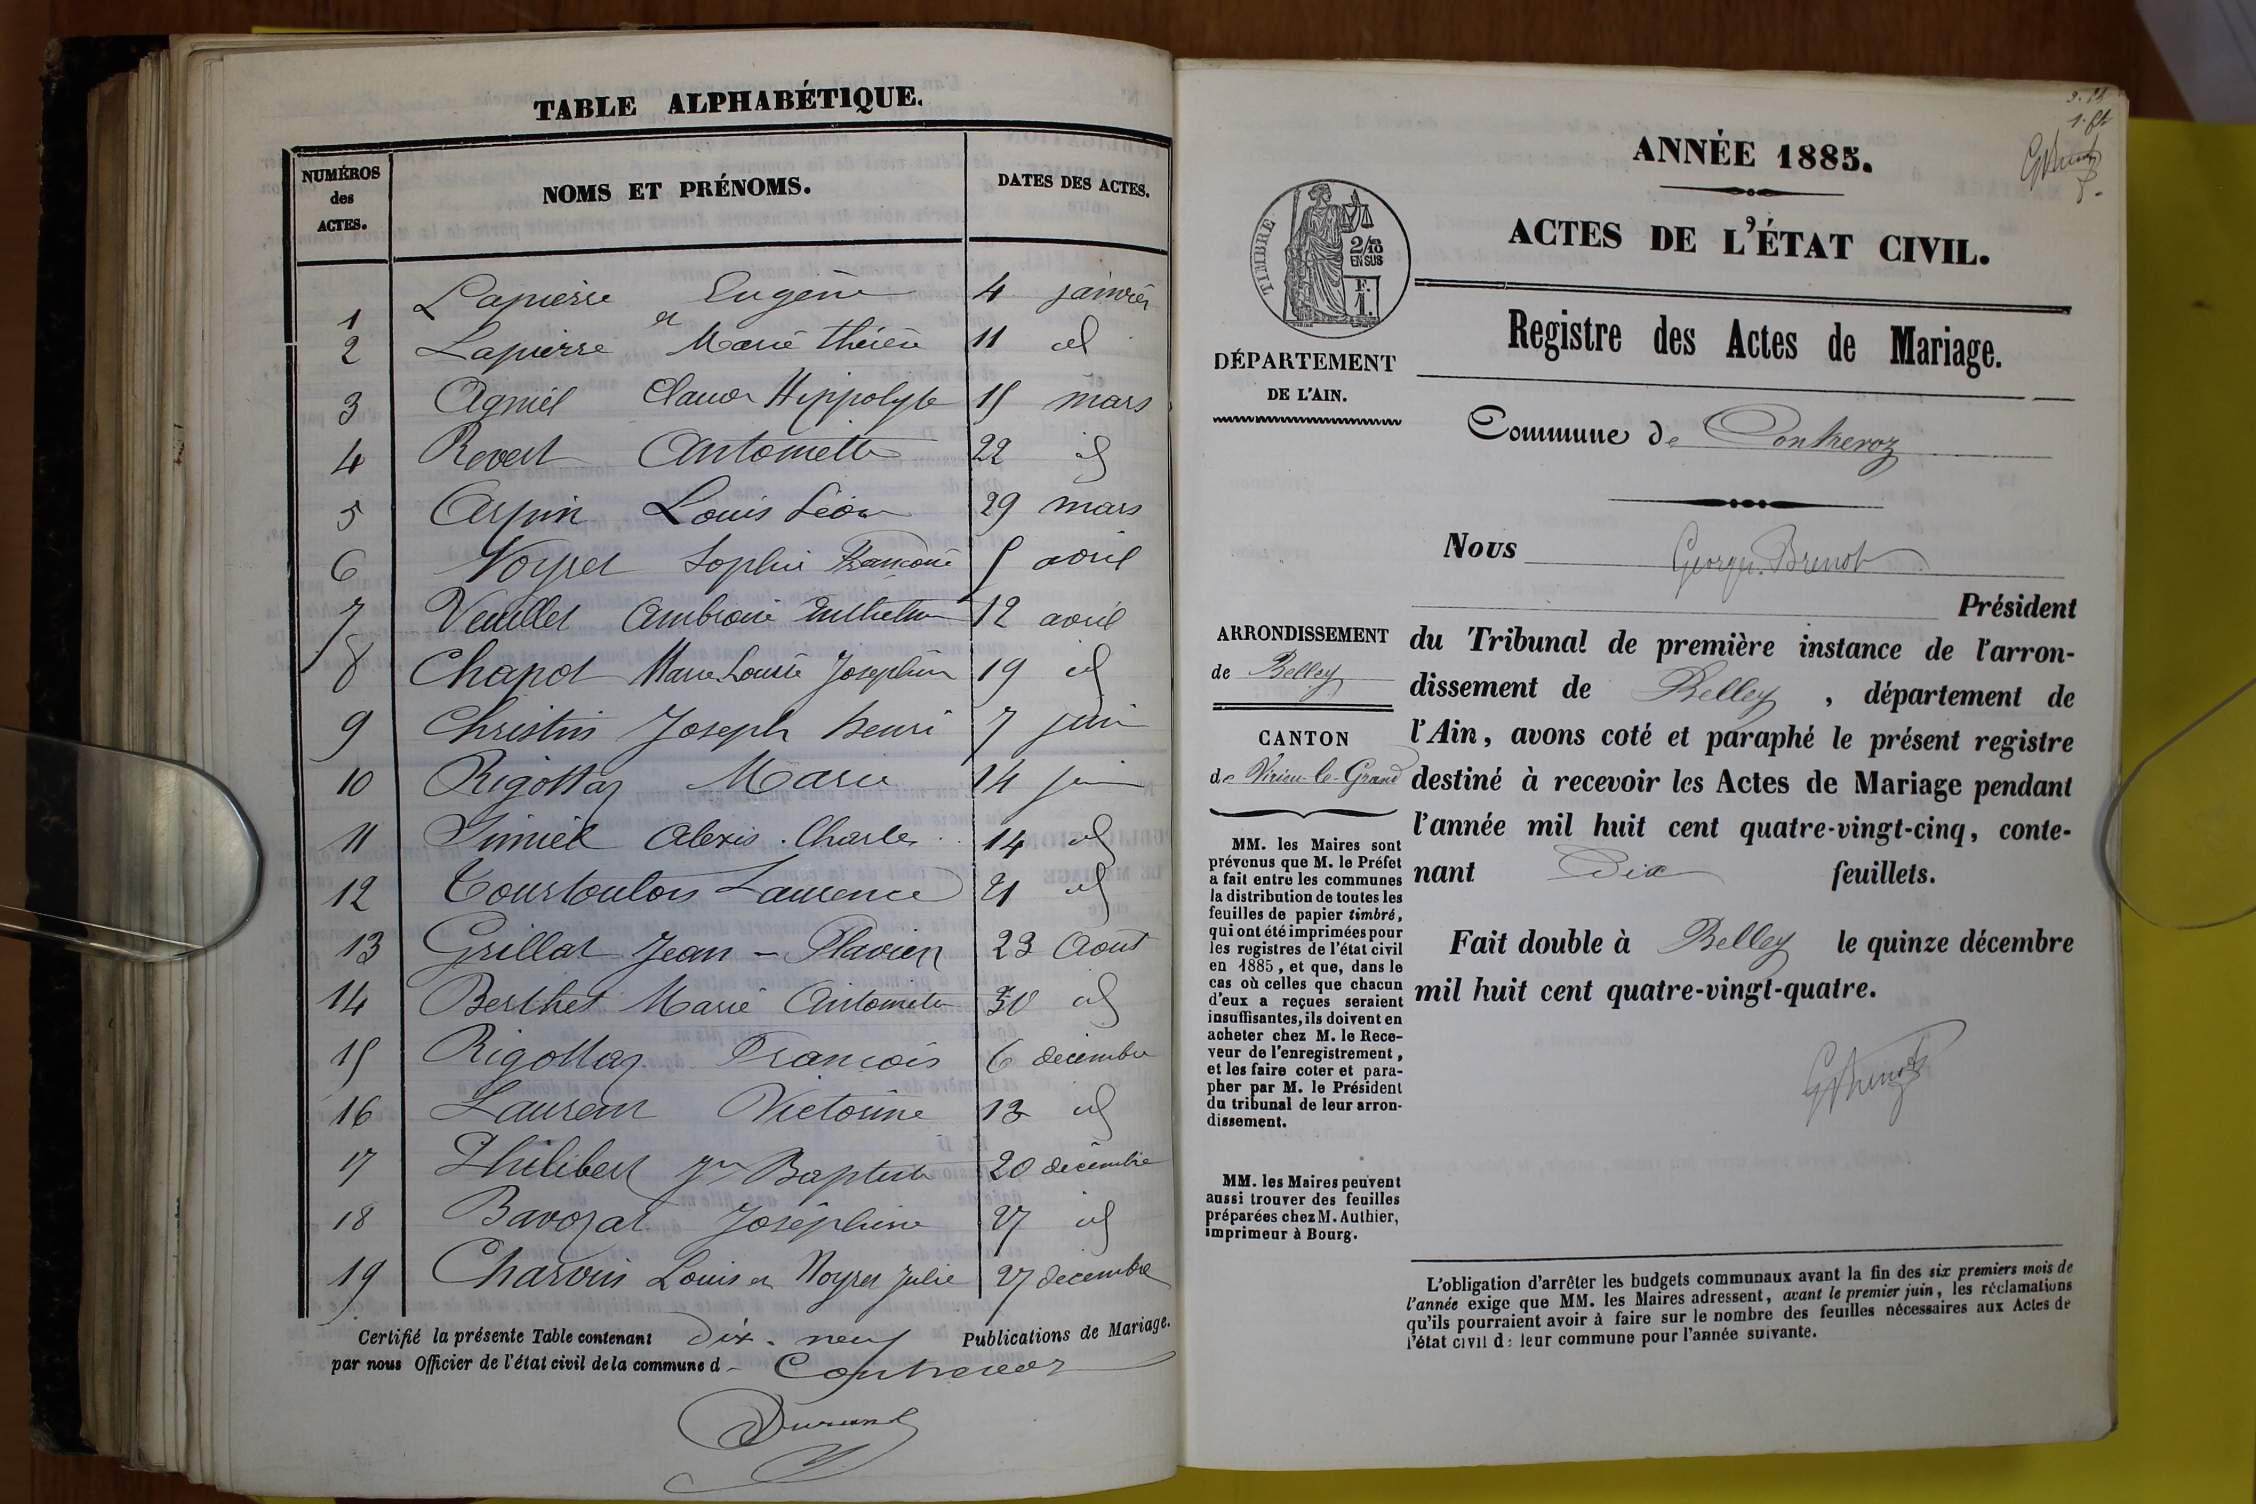 TABLE ALPHABÉTIQUE.
NUMÉROS des ACTES. NOMS ET PRÉNOMS. DATES DES ACTES.
1 Lapierre Eugène 4 janvier
et
2 Lapierre Marie Thérèse 11 id
3 Agniel Claude Hippolyte 15 mars
4 Revert Antoinette 22 id
5 Carpin Louis Léon 29 mars
6 Noyret Sophie Françoise 5 avril
7 Veuillet Ambroise 12 avril
8 Chapot Marie Louise Joséphine 19 id
9 Christin Joseph henri 7 juin
10 Rigottaz Marie 14 juin
11 Simiel Alexis Charles 14 id
12 Courtoulois Laurence 21 id
13 Grillat Jean - Flavien 23 Aout
14 Berthet Marie Antoinette 30 id
15 Rigottaz François 6 décembre
16 Laurent Victorine 13 id
17 Philibert Jn Baptiste 20 décembre
18 Bavozat Joséphine 27 id
19 Charvin Louis et Noyret Julie 27 décembre
Certifié la présente Table contenant dix-neuf Publications de Mariage.
par nous Officier de l'état civil de la commune d- Contrevoz
Durand
ANNÉE 1885.
ACTES DE L'ÉTAT CIVIL.
TIMBRE
2/10
EN SUS
F.
1.
Registre des Actes de Mariage.
DÉPARTEMENT
DE L'AIN.
Commune de Contrevoz
Nous Georges Brenot
Président
du Tribunal de première instance de l'arron-
dissement de Belley, département de
l'Ain, avons coté et paraphé le présent registre
destiné à recevoir les Actes de Mariage pendant
l'année mil huit cent quatre-vingt-cinq, conte-
nant Dix feuillets.
Fait double à Belley le quinze décembre
mil huit cent quatre-vingt-quatre.
GBrenot
ARRONDISSEMENT
de Belley
CANTON
de Virieu-le-Grand
MM. les Maires sont
prévenus que M. le Préfet
a fait entre les communes
la distribution de toutes les
feuilles de papier timbré,
qui ont été imprimées pour
les registres de l'état civil
en 1885, et que, dans le
cas où celles que chacun
d'eux a reçues seraient
insuffisantes, ils doivent en
acheter chez M. le Rece-
veur de l'enregistrement,
et les faire coter et para-
pher par M. le Président
du tribunal de leur arron-
dissement.
MM. les Maires peuvent
aussi trouver des feuilles
préparées chez M. Authier,
imprimeur à Bourg.
L'obligation d'arrêter les budgets communaux avant la fin des six premiers mois de
l'année exige que MM. les Maires adressent, avant le premier juin, les réclamations
qu'ils pourraient avoir à faire sur le nombre des feuilles nécessaires aux Actes de
l'état civil de leur commune pour l'année suivante.